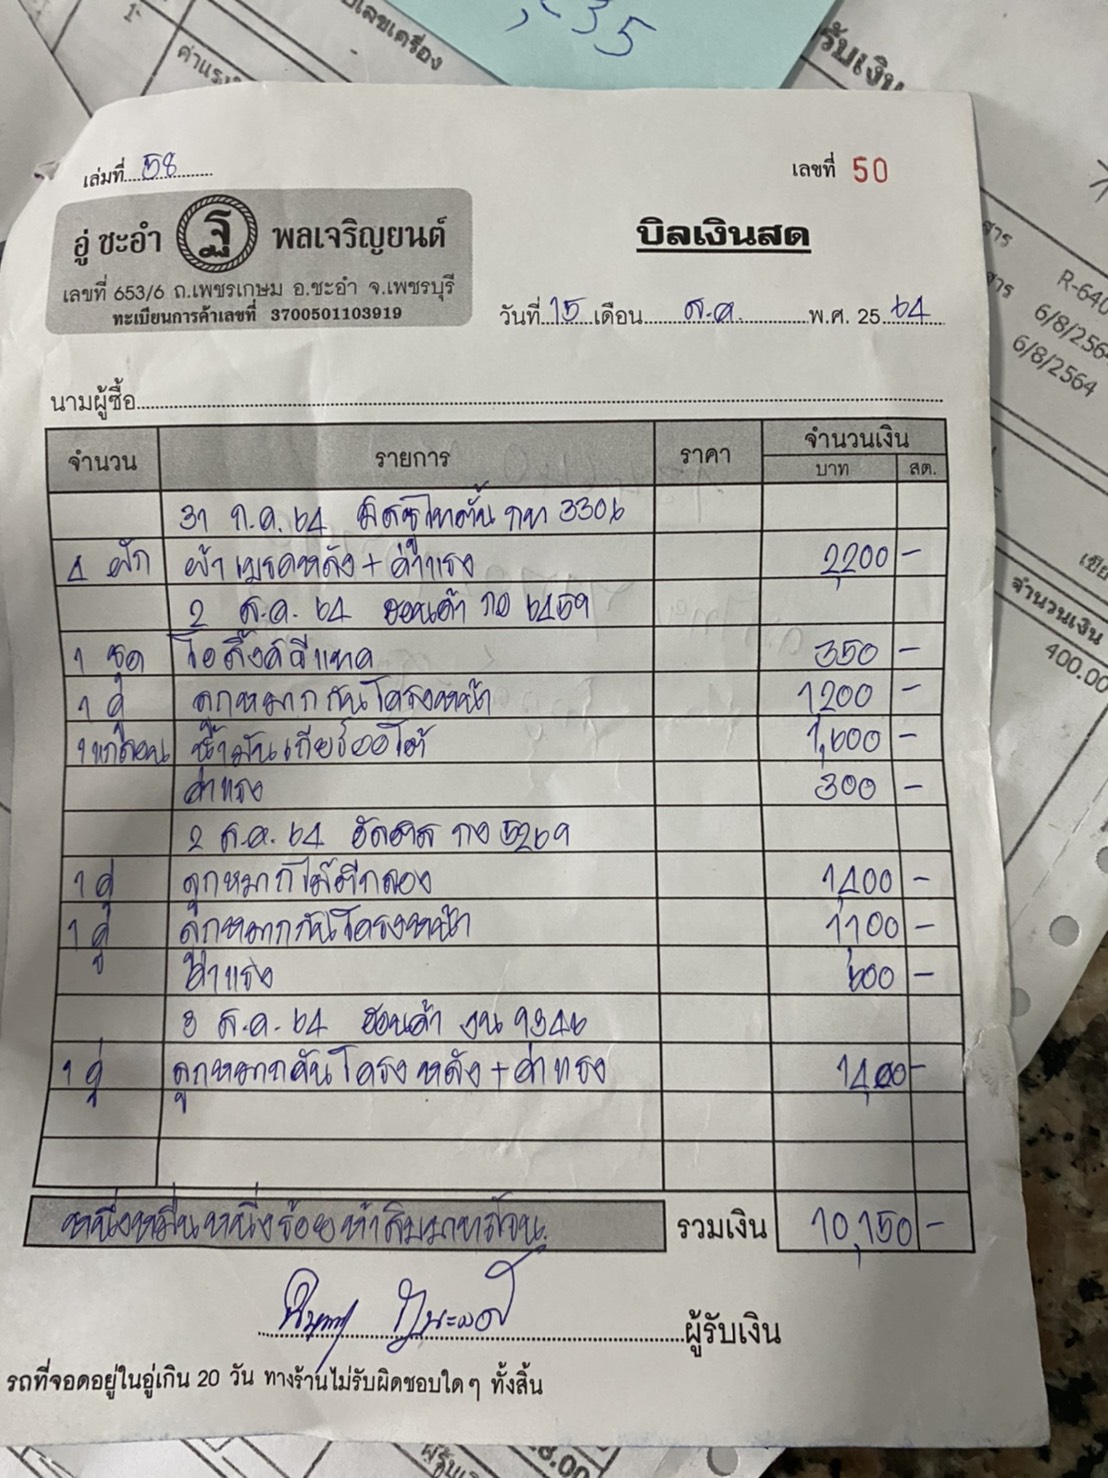 35
เลขเครื่อง
รับเงิน
R-640
6/8/256
6/8/2564
จำนวนเงิน
400.00
เล่มที่ 58
เลขที่ 50
อู่ ชะอำ ฐ พลเจริญยนต์
บิลเงินสด
เลขที่ 653/6 ถ.เพชรเกษม อ.ชะอำ จ.เพชรบุรี
ทะเบียนการค้าเลขที่ 3700501103919
วันที่ 15 เดือน ส.ค. พ.ศ. 25 64
นามผู้ซื้อ
จำนวน รายการ ราคา จำนวนเงิน
บาท สต.
31 ก.ค. 64 มิตซูไทตั้น กท 3306
4 ฝัก ผ้าเบรคหลัง + ค่าแรง 2,200 -
2 ส.ค. 64 ฮอนด้า กอ 6459
1 ชุด 350 -
1 คู่ ลูกหมากกันโครงหน้า 1200 -
1 แกลลอน น้ำมันเกียร์ออโต้ 1,600 -
ค่าแรง 300 -
2 ส.ค. 64 กง 5269
1 คู่ ลูกหมากไม้ตีกลอง 1,400 -
1 คู่ ลูกหมากกันโครงหน้า 1,100 -
ค่าแรง 600 -
8 ส.ค. 64 ฮอนด้า งน 9346
1 คู่ ลูกหมากกันโครงหลัง + ค่าแรง 1,400 -
หนึ่งหมื่นหนึ่งร้อยห้าสิบบาทถ้วน. รวมเงิน 10,150 -
ผู้รับเงิน
รถที่จอดอยู่ในอู่เกิน 20 วัน ทางร้านไม่รับผิดชอบใดๆ ทั้งสิ้น